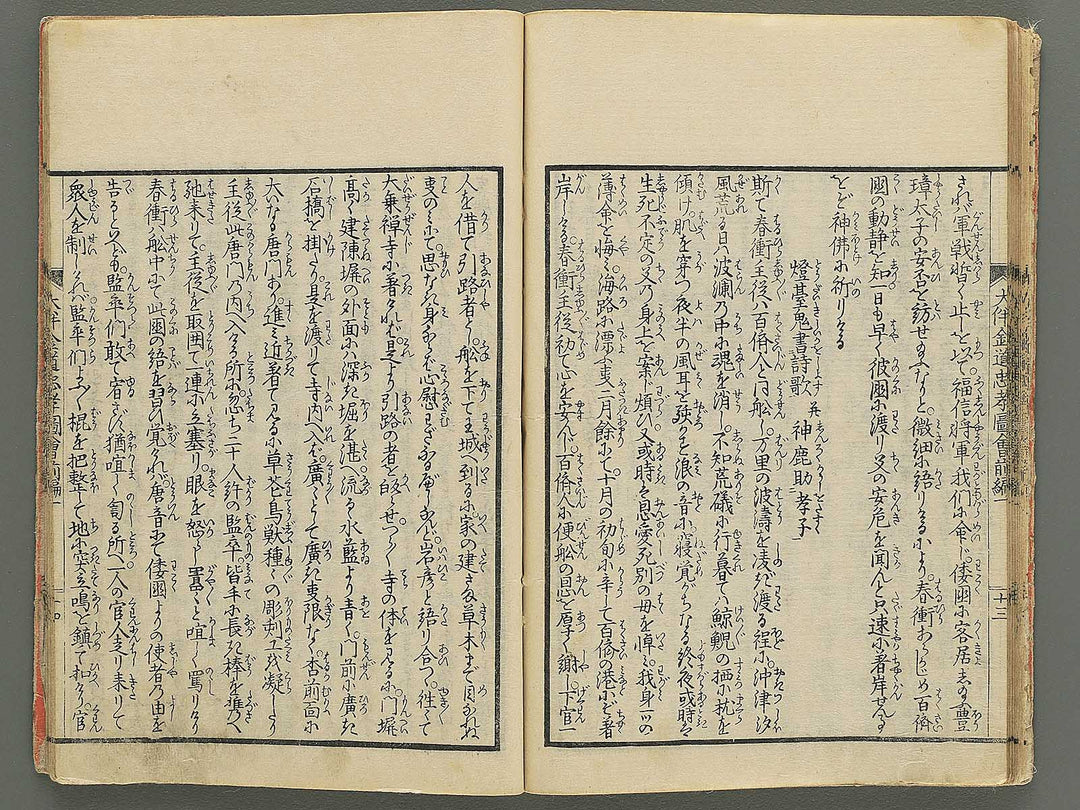 大伴金道忠孝圖會前編一
十三
され軍戦暫く止しと以て福信将軍我們に命じ倭國に客居志多る豊
璋太子の安否を訪せますなりと微細に語りけるにより春衝あらかじめ百済
國の動静を知一日も早く彼國に渡り父の安危を聞んと只速に着岸せんこ
とを神佛に祈りける
燈臺鬼書詩歌 并 神鹿助孝子
斯て春衝主従ハ百済人と同船し万里の波濤を凌ぎ渡る程に沖津汐
風荒る日ハ波瀾の中に魂を消し不知荒礒に行暮てハ鯨鯢の栖に枕を
傾け肌を穿つ夜半の風耳を驚す浪の音に寝覚がちなる終夜或時ハ
生死不定の父の身上を案じ煩ひ又或時ハ恩愛死別の母を悼ミ我身一ツの
薄命を悔ミ海路に漂ふ支二月餘にて十月の初旬に辛じて百済の港にぞ着
岸しける春衝主従初て心を安んじ百済人に便船の恩を厚く謝し下官一
人を借て引路者とし船を下て王城へ到るに家の建さま草木まで目なれね
支のミにて思なれ身ならバ心慰むこともあるべけんと岩彦と語り合つゝ往て
大乗禅寺に着けれバ是より引路の者を皈らせつく〴〵寺の体を見るに門塀
高く建陳塀の外面にハ深き堀を湛へ流るゝ水藍より青く門前に廣き
石橋を掛たり是を渡りて寺内へ入れバ廣々として廣き支限なく杳前面に
大いなる唐門あり進ミ近着て見るに草花鳥獣種々の彫刻工を凝したり
主従此唐門の内へ入ける所に忽ち二十人許の監卒皆手に長き棒を携へ
馳来りて主従を取囲て一連に立塞り眼を怒し囂々と喧しく罵りけり
春衝ハ舩中にて此國の語を習ひ覚けれバ唐音にて倭國よりの使者乃由を
告るといへども監卒們敢て容さず猶喧しく訇る所へ一人の官人走り来りて
衆人を制しけれバ監卒們よふ〳〵棍を把整て地に突立鳴を鎮て扣たり官